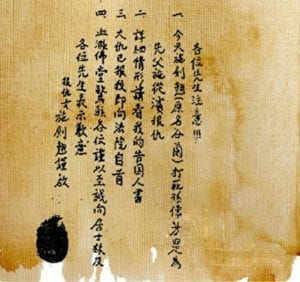 各位先生注意!!
一 今天施劍翹(原名谷蘭)打死孫傳芳是為
先父施從濱報仇
二 詳細情形請看我的告國人書
三 大仇已報我即向法院自首
四 血濺佛堂驚駭各位謹以至誠向居士林及
各位先生表示歉意
報仇女施劍翹謹啟